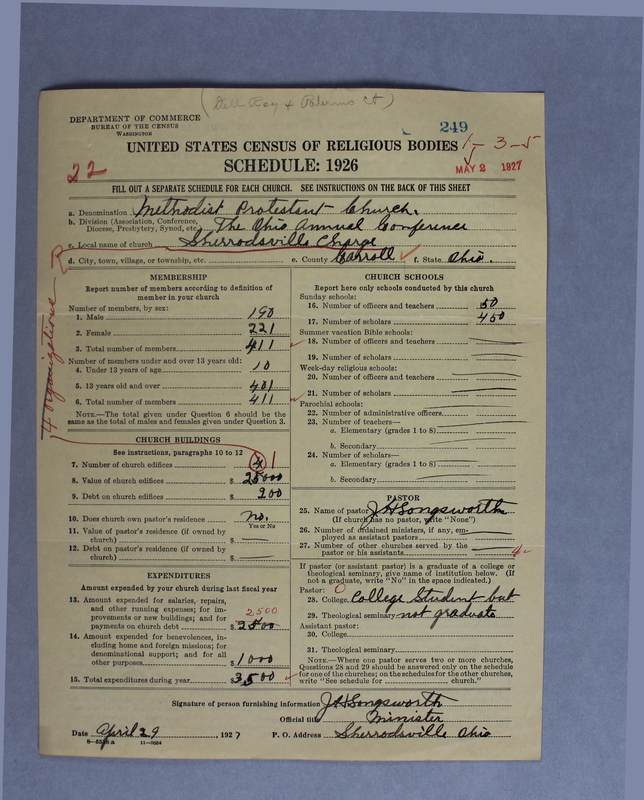 (Dell Roy & Palermo Ct)
DEPARTMENT OF COMMERCE
BUREAU OF THE CENSUS
WASHINGTON
249
UNITED STATES CENSUS OF RELIGIOUS BODIES 1-3-5
22
SCHEDULE: 1926
MAY 2 1927
FILL OUT A SEPARATE SCHEDULE FOR EACH CHURCH. SEE INSTRUCTIONS ON THE BACK OF THIS SHEET
a. Denomination Methodist Protestant Church.
b. Division (Association, Conference, Diocese, Presbytery, Synod, etc.) The Ohio Annual Conference
c. Local name of church Sherrodsville Charge
d. City, town, village, or township, etc. e. County Carroll f. State Ohio.
4 organizations
MEMBERSHIP
Report number of members according to definition of
member in your church
Number of members, by sex:
1. Male 190
2. Female 221
3. Total number of members 411
Number of members under and over 13 years old:
4. Under 13 years of age 10
5. 13 years old and over 401
6. Total number of members 411
NOTE.—The total given under Question 6 should be the
same as the total of males and females given under Question 3.
CHURCH BUILDINGS
See instructions, paragraphs 10 to 12
7. Number of church edifices 4 1
8. Value of church edifices $ 25000
9. Debt on church edifices $ 200
10. Does church own pastor's residence no.
Yes or No
11. Value of pastor's residence (if owned by
church) $
12. Debt on pastor's residence (if owned by
church) $
EXPENDITURES
Amount expended by your church during last fiscal year
13. Amount expended for salaries, repairs,
and other running expenses; for im-
provements or new buildings; and for
payments on church debt $ 2500
2500
14. Amount expended for benevolences, in-
cluding home and foreign missions; for
denominational support; and for all
other purposes $ 1000
15. Total expenditures during year $ 3500
CHURCH SCHOOLS
Report here only schools conducted by this church
Sunday schools:
16. Number of officers and teachers 50
17. Number of scholars 450
Summer vacation Bible schools:
18. Number of officers and teachers
19. Number of scholars
Week-day religious schools:
20. Number of officers and teachers
21. Number of scholars
Parochial schools:
22. Number of administrative officers
23. Number of teachers—
a. Elementary (grades 1 to 8)
b. Secondary
24. Number of scholars—
a. Elementary (grades 1 to 8)
b. Secondary
PASTOR
25. Name of pastor J H Longsworth
(If church has no pastor, write "None")
26. Number of ordained ministers, if any, em-
ployed as assistant pastors
27. Number of other churches served by the
pastor or his assistants 4
If pastor (or assistant pastor) is a graduate of a college or
theological seminary, give name of institution below. (If
not a graduate, write "No" in the space indicated.)
Pastor: 0
28. College College Student but
29. Theological seminary not graduate
Assistant pastor:
30. College
31. Theological seminary
NOTE.—Where one pastor serves two or more churches,
Questions 28 and 29 should be answered only on the schedule
for one of the churches; on the schedules for the other churches,
write "See schedule for church."
Signature of person furnishing information J H Longsworth
Official title Minister
Date April 29, 1927 P. O. Address Sherrodsville Ohio
11-9684